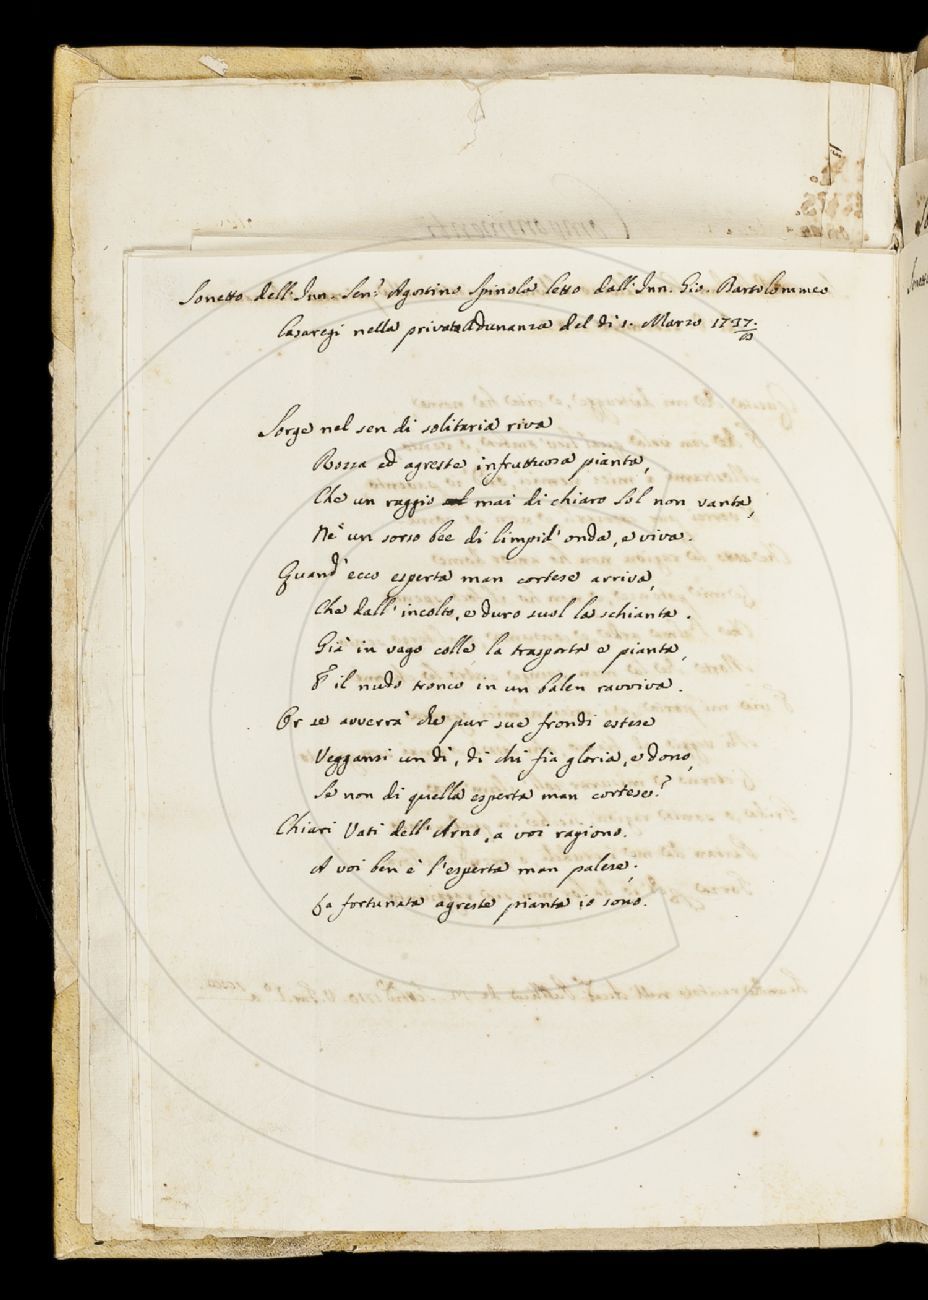 Sonetto dell' Inn. Sen.e Agostino Spinola letto dall' Inn. Gio. Bartolommeo
Casaregi nella privata Adunanza del dì 1. Marzo 1737.
Sorge nel sen di solitaria riva
Rozza ed agreste infruttuosa pianta,
Che un raggio mai di chiaro Sol non vanta,
Nè un sorso bee di limpid' onda, e viva.
Quand' ecco esperta man cortese arriva,
Che dall' incolto, e duro suol la schianta.
Già in vago colle la trasporta e pianta,
E il nudo tronco in un balen ravviva.
Or se avverrà che pur sue frondi estese
Veggansi un dì, di chi fia gloria, e dono,
Se non di quella esperta man cortese?
Chiari Vati dell' Arno, a voi ragiono.
A voi ben è l'esperta man palese;
La fortunata agreste pianta io sono.